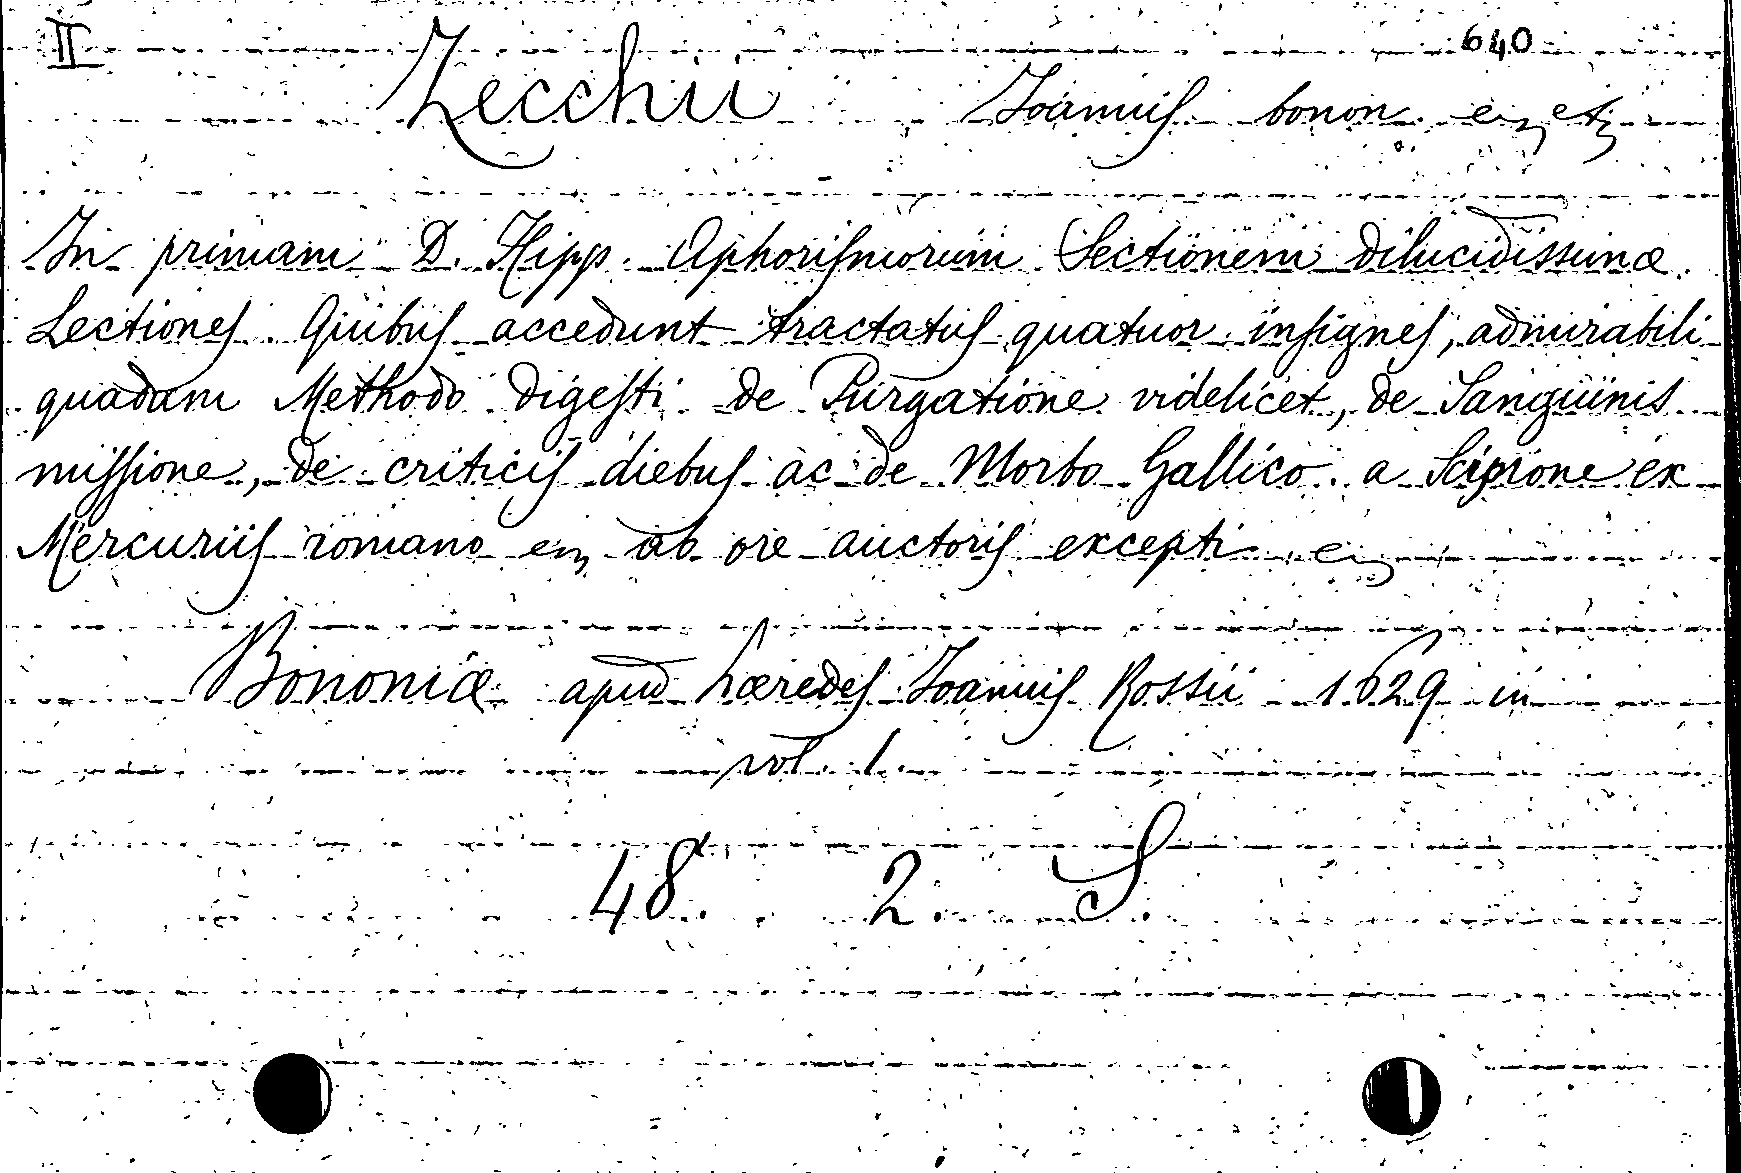 II 640
Zecchii Joannis bonon. etz etz
In primam D. Hipp. Aphorismorum Sectionem dilucidissimæ
Lectiones. Quibus accedunt tractatus quatuor insignes, admirabili
quadam Methodo digesti de Purgatione videlicet, de Sanguinis
missione, de criticis diebus ac de Morbo Gallico. a Scipione ex
Mercuriis romano etz ab ore auctoris excepti etz
Bononiæ apud hæredes Joannis Rossii 1629 in
vol. 1.
48. 2. S.